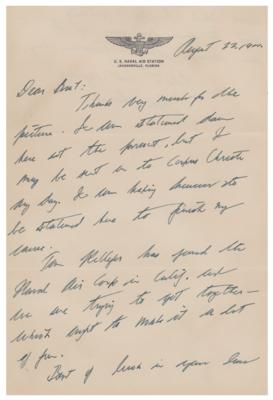 U. S. NAVAL AIR STATION
JACKSONVILLE, FLORIDA
August 22, 
Dear 
Thanks very much for the
picture. I am stationed down
here at the present, but I
may be sent on to Corpus Christi
any day. I am 
be stationed here to finish my
course.
Tom has joined the
Naval Air Corps in Calif. and
we are trying to get together—
which ought to make it a lot
of fun.
Best of luck in your